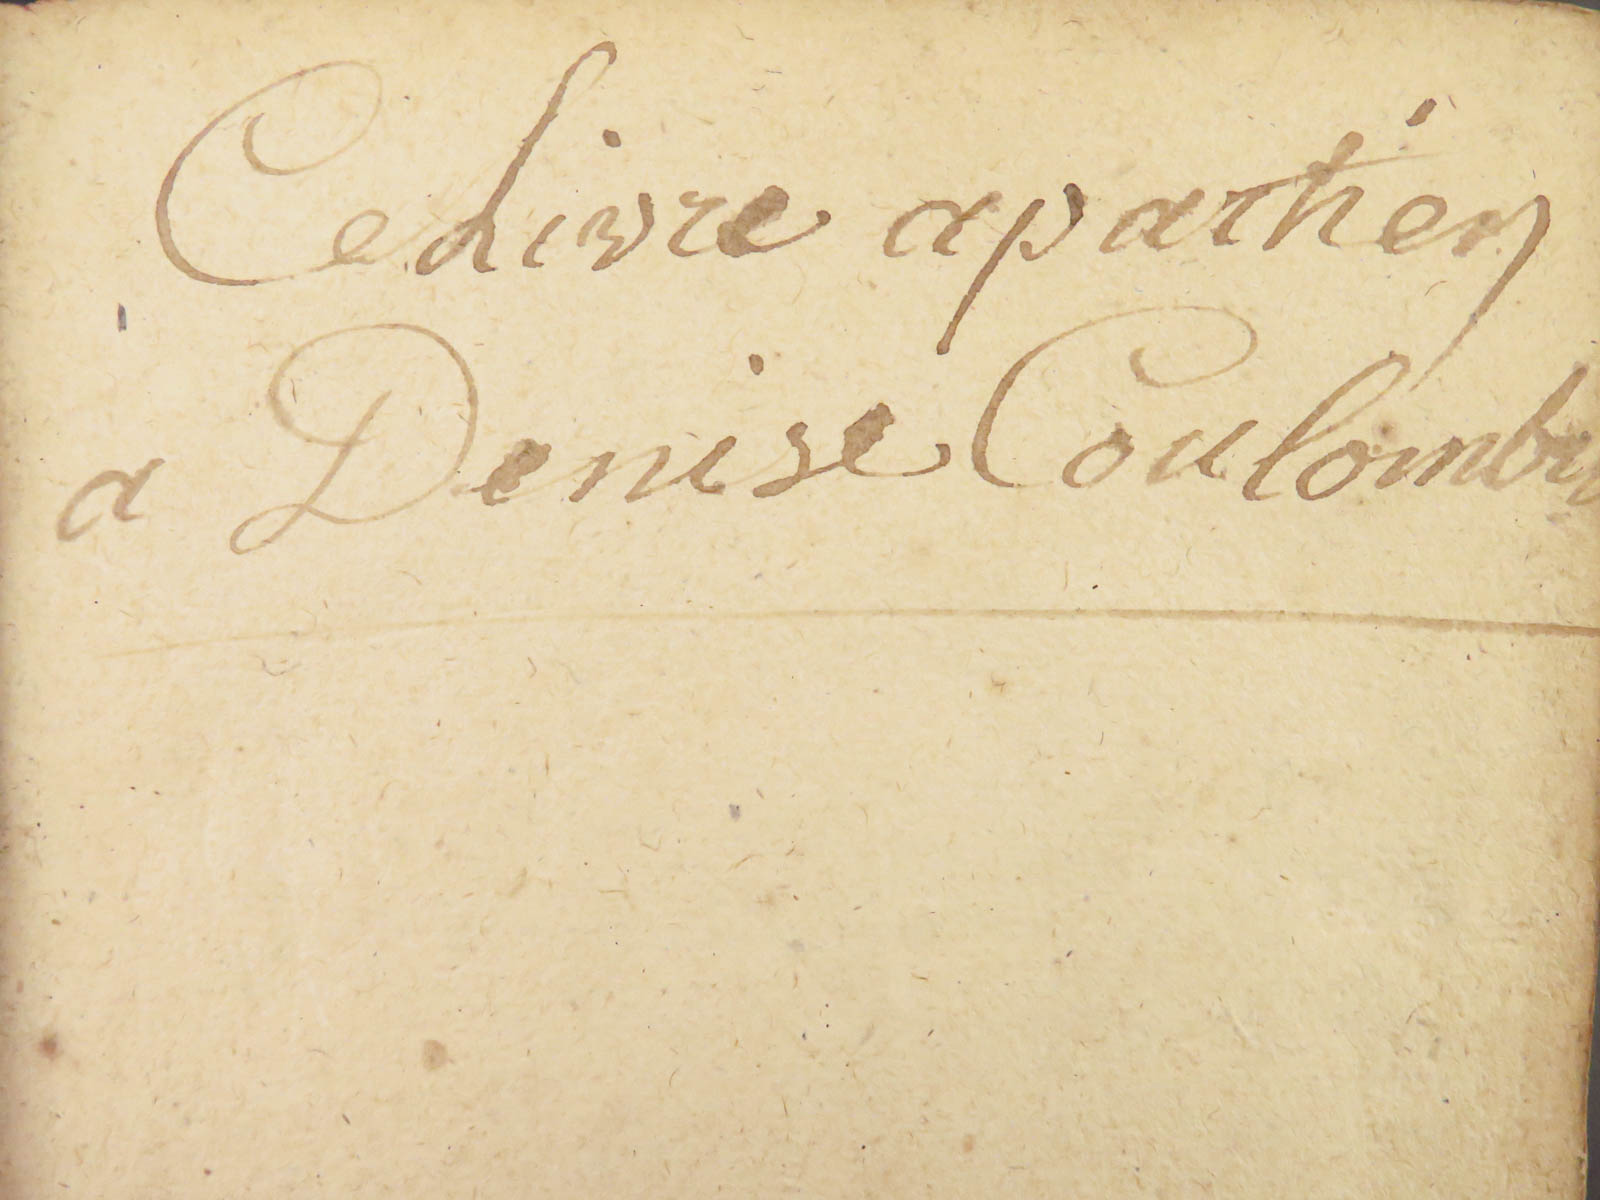 Ce livre apartien
a Denise Coulomby